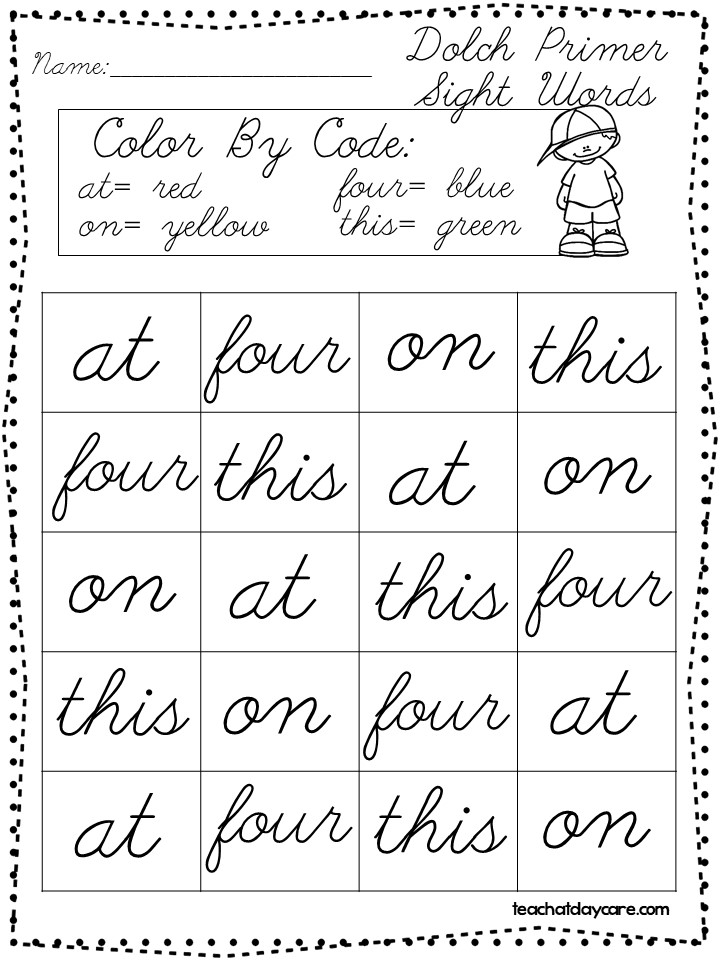 Name:
Dolch Primer
Sight Words
Color By Code:
at= red four= blue
on= yellow this= green
at four on this
four this at on
on at this four
this on four at
at four this on
teachatdaycare.com